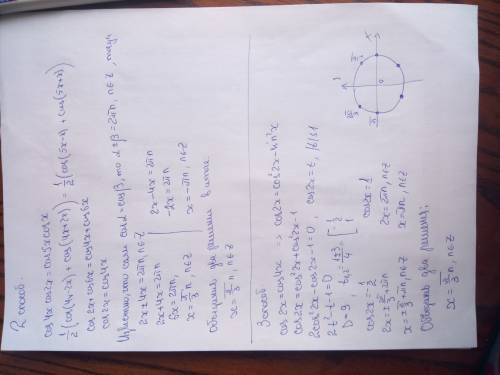 2 способ.
cos4x cos2x = cos5x cosx
1/2(cos(4x-2x) + cos(4x+2x)) = 1/2(cos(5x-x) + cos(5x+x))
cos2x + cos6x = cos4x + cos6x
cos2x = cos4x
Известно, что если cosα = cosβ, то α±β = 2πn, n∈Z, тогда
2x+4x = 2πn, n∈Z
2x+4x = 2πn
6x = 2πn,
x = π/3 n, n∈Z
2x-4x = 2πn
-2x = 2πn
x = -πn, n∈Z
Объединив два решения в итоге
x = π/3 n, n∈Z
3 способ
cos2x = cos4x => cos2x = cos²2x - sin²2x
cos2x = cos²2x + cos²2x - 1
2cos²2x - cos2x - 1 = 0, cos2x = t, |t|≤1
2t² - t - 1 = 0
D = 9, t₁,₂ = (1±3)/4 = [-1/2 1
cos2x = -1/2
2x = ±2π/3 + 2πn, n∈Z
x = ±π/3 + πn, n∈Z
cos2x = 1
2x = 2πn, n∈Z
x = πn, n∈Z
Объединив два решения:
x = π/3 n, n∈Z